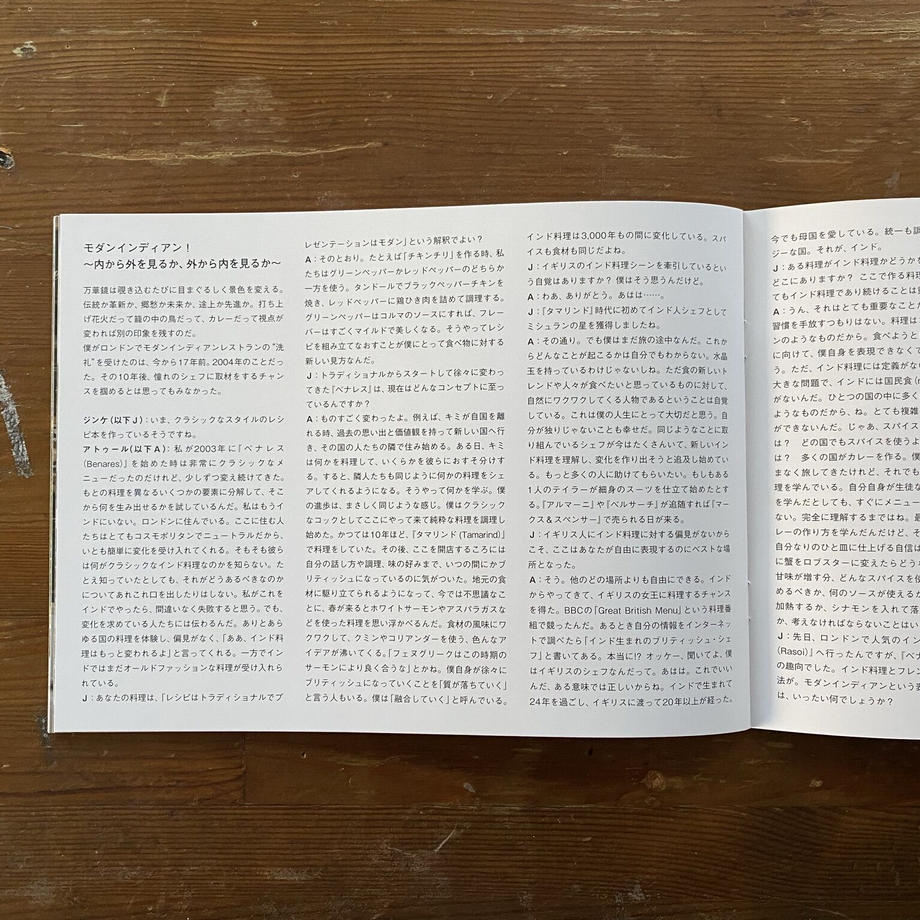 モダンインディアン！
〜内から外を見るか、外から内を見るか〜
万華鏡は覗き込むたびに目まぐるしく景色を変える。
伝統か革新か、郷愁か未来か、途上か先進か。打ち上
げ花火だって籠の中の鳥だって、カレーだって視点が
変われば別の印象を残すのだ。
僕がロンドンでモダンインディアンレストランの“洗
礼”を受けたのは、今から17年前。2004年のことだっ
た。その10年後、憧れのシェフに取材をするチャン
スを掴めるとは思ってもみなかった。
ジンケ（以下J）：いま、クラシックなスタイルのレシ
ピ本を作っているそうですね。
アトゥール（以下A）：私が2003年に『ベナレス
(Benares)』を始めた時は非常にクラシックなメ
ニューだったのだけれど、少しずつ変え続けてきた。
もとの料理を異なるいくつかの要素に分解して、そこ
から何を生み出せるかを試しているんだ。私はもうイ
ンドにいない。ロンドンに住んでいる。ここに住む人
たちはとてもコスモポリタンでニュートラルだから、
いとも簡単に変化を受け入れてくれる。そもそも彼ら
は何がクラシックなインド料理なのかを知らない。た
とえ知っていたとしても、それがどうあるべきなのか
についてあれこれ口を出したりはしない。私がこれを
インドでやったら、間違いなく失敗すると思う。でも、
変化を求めている人たちには伝わるんだ。ありとあら
ゆる国の料理を体験し、偏見がなく、「ああ、インド料
理はもっと変われるよ」と言ってくれる。一方でイン
ドではまだオールドファッションな料理が受け入れら
れている。
J：あなたの料理は、「レシピはトラディショナルでプ
レゼンテーションはモダン」という解釈でよい？
A：そのとおり。たとえば「チキンチリ」を作る時、私
たちはグリーンペッパーかレッドペッパーのどちらか
一方を使う。タンドールでブラックペッパーチキンを
焼き、レッドペッパーに鶏ひき肉を詰めて調理する。
グリーンペッパーはコルマのソースにすれば、フレー
バーはすごくマイルドで美しくなる。そうやってレシ
ピを組み立てなおすことが僕にとって食べ物に対する
新しい見方なんだ。
J：トラディショナルからスタートして徐々に変わっ
てきた『ベナレス』は、現在はどんなコンセプトに至っ
ているんですか？
A：ものすごく変わったよ。例えば、キミが自国を離
れる時、過去の思い出と価値観を持って新しい国へ行
き、その国の人たちの隣で住み始める。ある日、キミ
は何かを料理して、いくらかを彼らにおすそ分けす
る。すると、隣人たちも同じように何かの料理をシェ
アしてくれるようになる。そうやって何かを学ぶ。僕
の進歩は、まさしく同じような感じ。僕はクラシック
なコックとしてここにやって来て純粋な料理を調理し
始めた。かつては10年ほど、『タマリンド(Tamarind)』
で料理をしていた。その後、ここを開店するころには
自分の話し方や調理、味の好みまで、いつの間にかブ
リティッシュになっているのに気がついた。地元の食
材に駆り立てられるようになって、今では不思議なこ
とに、春が来るとホワイトサーモンやアスパラガスな
どを使った料理を思い浮かべるんだ。食材の風味にワ
クワクして、クミンやコリアンダーを使う、色んなア
イデアが沸いてくる。「フェヌグリークはこの時期の
サーモンにより良く合うな」とかね。僕自身が徐々に
ブリティッシュになっていくことを「質が落ちていく」
と言う人もいる。僕は「融合していく」と呼んでいる。
インド料理は3,000年もの間に変化している。スパ
イスも食材も同じだよね。
J：イギリスのインド料理シーンを牽引しているとい
う自覚はありますか？ 僕はそう思うんだけど。
A：わあ、ありがとう。あはは……。
J：『タマリンド』時代に初めてインド人シェフとして
ミシュランの星を獲得しましたね。
A：その通り。でも僕はまだ旅の途中なんだ。これか
らどんなことが起こるかは自分でもわからない。水晶
玉を持っているわけじゃないしね。ただ食の新しいト
レンドや人々が食べたいと思っているものに対して、
自然にワクワクしてくる人物であるということは自覚
している。これは僕の人生にとって大切だと思う。自
分が独りじゃないことも幸せだ。同じようなことに取
り組んでいるシェフが今はたくさんいて、新しいイン
ド料理を理解し、変化を作り出そうと追及し始めてい
る。もっと多くの人に助けてもらいたい。もしもある
1人のテイラーが細身のスーツを仕立て始めたとす
る。『アルマーニ』や『ベルサーチ』が追随すれば『マー
クス＆スペンサー』で売られる日が来る。
J：イギリス人にインド料理に対する偏見がないから
こそ、ここはあなたが自由に表現するのにベストな場
所となった。
A：そう。他のどの場所よりも自由にできる。インド
からやってきて、イギリスの女王に料理するチャンス
を得た。BBCの『Great British Menu』という料理番
組で競ったんだ。あるとき自分の情報をインターネッ
トで調べたら「インド生まれのブリティッシュ・シェ
フ」と書いてある。本当に!? オッケー、聞いてよ、僕
はイギリスのシェフなんだって。あはは。これでいい
んだ、ある意味では正しいからね。インドで生まれて
24年を過ごし、イギリスに渡って20年以上が経った。
今でも母国を愛している。統一も
ジーな国。それが、インド。
J：ある料理がインド料理かどうかを
どこにありますか？ ここで作る料理
てもインド料理であり続けることは
A：うん、それはとても重要なこと
習慣を手放すつもりはない。料理は
ンのようなものだから。食べようと
に向けて、僕自身を表現できなくて
う。ただ、インド料理には定義がな
大きな問題で、インドには国民食（
がないんだ。ひとつの国の中に多く
ようなものだから、ね。とても複雑
ができないんだ。じゃあ、スパイス
は？ どの国でもスパイスを使うよ
は？ 多くの国がカレーを作る。僕
まなく旅してきたけれど、それでも
理を学んでいる。自分自身が生徒な
を学んだとしても、すぐにメニュー
ない。完全に理解するまではね。最
レーの作り方を学んだんだけど、そ
自分なりのひと皿に仕上げる自信は
に蟹をロブスターに変えたらどうな
甘味が増す分、どんなスパイスを使
めるべきか、何のソースが使えるか
加熱するか、シナモンを入れて落
か、考えなければならないことはい
J：先日、ロンドンで人気のイン
(Rasoi)』へ行ったんですが、『ベナ
の趣向でした。インド料理とフレン
法が。モダンインディアンという表
は、いったい何でしょうか？